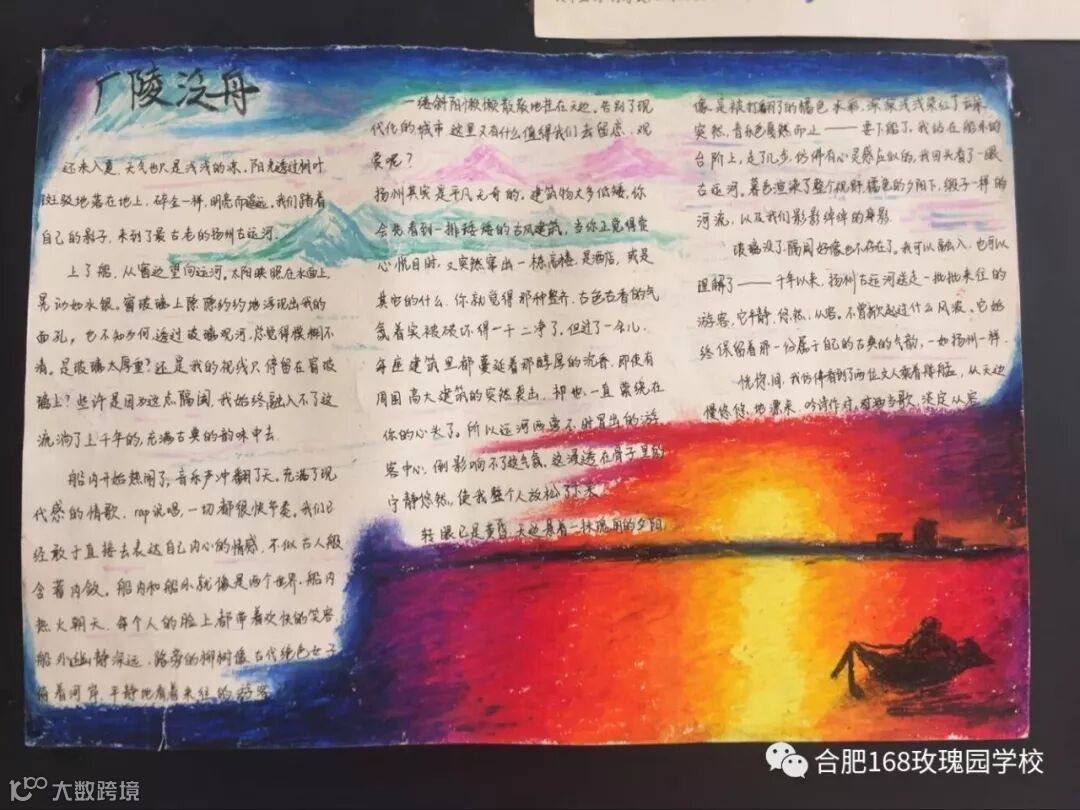 广陵泛舟
还未入夏,天气也只是浅浅的凉。阳光透过树叶
斑驳地落在地上,碎金一样,明亮而遥远。我们踏着
自己的影子,来到了最古老的扬州古运河。
上了船,从窗边望向运河。太阳映照在水面上,
晃动如水银。窗玻璃上隐隐约约地浮现出我的
面孔,也不知为何,透过玻璃观河,总觉得模糊不
清。是玻璃太厚重?还是我的视线只停留在窗玻
璃上?些许是因为这点隔阂,我始终融入不了这
流淌了上千年的,充满古典的韵味中去。
船内开始热闹了,音乐声冲翻了天。充满了现
代感的情歌、rap说唱,一切都很快节奏。我们已
经敢于直接去表达自己内心的情感,不似古人般
含蓄内敛。船内和船外就像是两个世界,船内
热火朝天,每个人的脸上都带着欢快的笑容
船外幽静深远,路旁的柳树像古代绝色女子
倚着河岸,平静地看着来往的游客
一缕斜阳懒懒散散地挂在天边。告别了现
代化的城市,这里又有什么值得我们去留恋、观
赏呢?
扬州其实是平凡无奇的。建筑物大多低矮,你
会先看到一排矮矮的古风建筑,当你正觉得赏
心悦目时,又突然窜出一栋高楼,是酒店,或是
其它的什么,你就觉得那种整齐、古色古香的气
氛着实被破坏得一干二净了,但过了一会儿,
每座建筑里都蔓延着那醇厚的沉香,即使有
周围高大建筑的突然袭击,却也一直萦绕在
你的心头了。所以运河两旁不时冒出的游
客中心,倒影响不了这气氛。这浸透在骨子里的
宁静悠然,使我整个人放松了下来
转眼已是黄昏,天边悬着一抹瑰丽的夕阳
像是被打翻了的橘色水彩,深深浅浅染红了云朵
突然,音乐也戛然而止——要下船了。我站在船末的
台阶上,走了几步,仿佛有心灵感应似的,我回头看了一眼
古运河。暮色渲染了整个视野,橘色的夕阳下,缎子一样的
河流,以及我们影影绰绰的身影。
玻璃没了,隔阂好像也不存在了。我可以融入,也可以
理解了——千年以来,扬州古运河送走一批批来往的
游客,它平静、悠然、从容。不曾掀起过什么风波。它始
终保留着那一份属于自己的古典的气韵,一如扬州一样。
恍惚间,我仿佛看到了两位文人乘着摇船,从天边
慢悠悠地漂来,吟诗作对,对酒当歌,淡定从容
合肥168玫瑰园学校
大数跨境